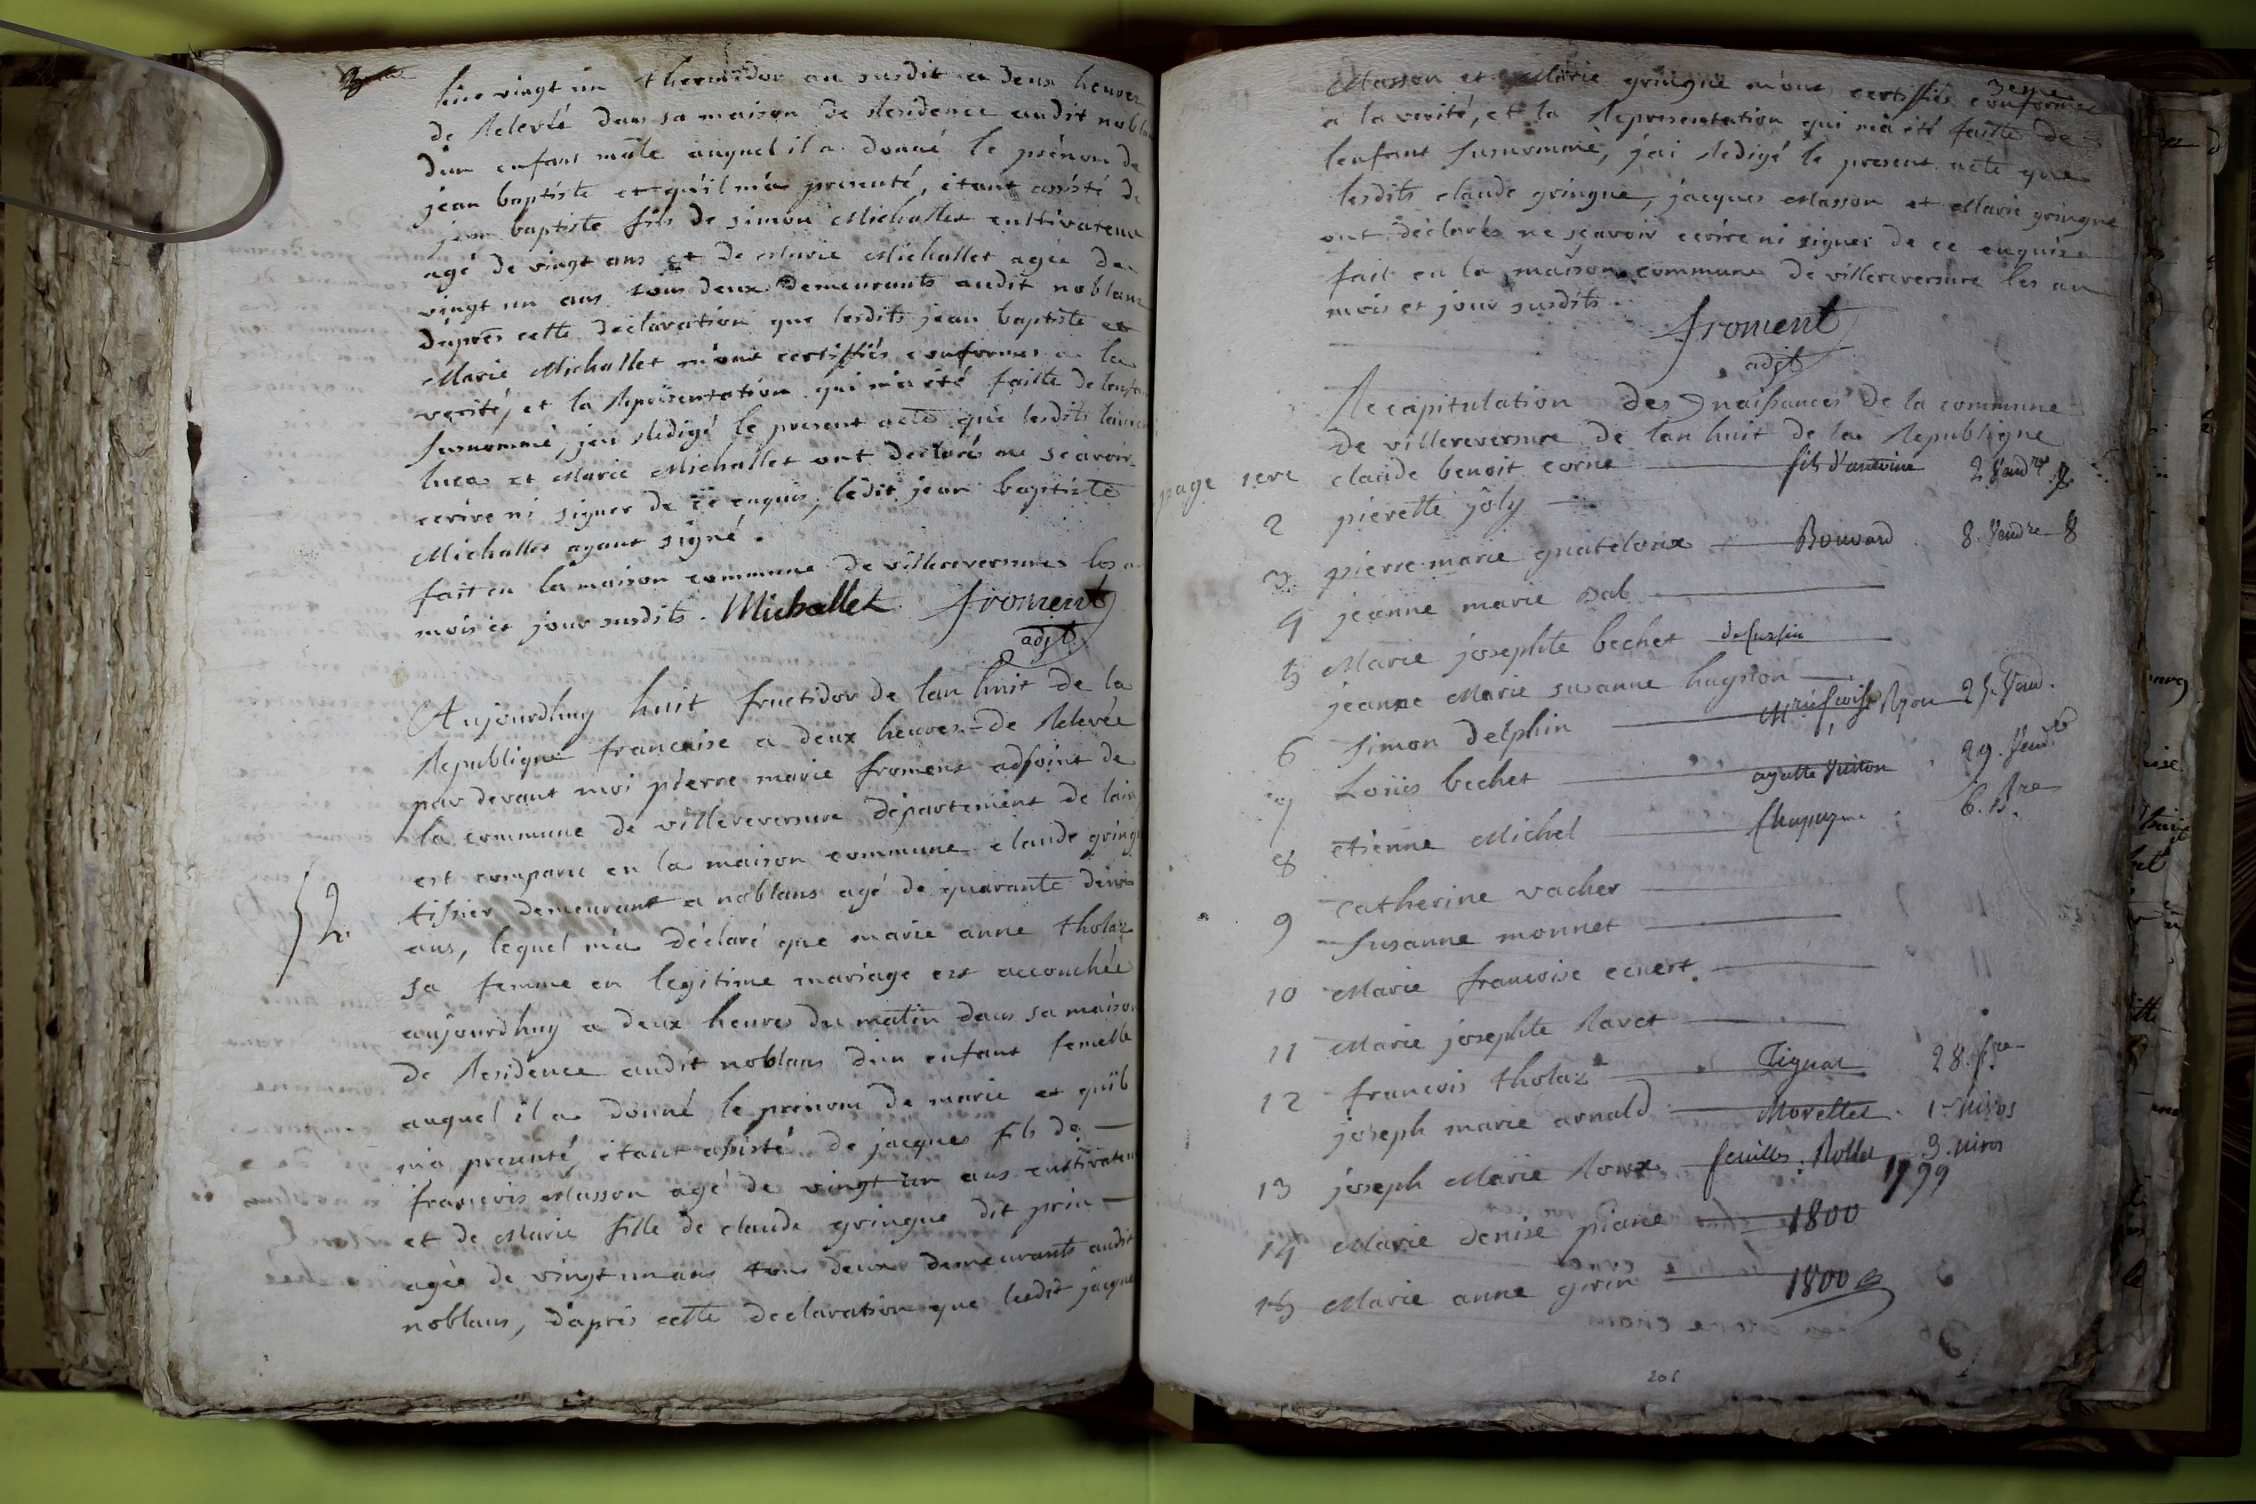 hier vingt un thermidor an susdit a deux heures
de Relevée dans sa maison de Residence audit noblans
d'un enfant male auquel il a donné le prénom de
jean baptiste et qu'il m'a presenté, étant assisté de
jean baptiste fils de simon Michallet cultivateur
agé de vingt ans et de Marie Michallet agée de
vingt un ans tous deux demeurants audit noblans
d'après cette declaration que lesdits jean baptiste et
Marie Michallet m'ont certiffiés conforme a la
verité, et la Representation qui m'a été faitte de lenfant
susnommé, jai Redigé le present acte que lesdits
luca et Marie Michallet ont declarés ne scavoir
ecrire ni signer de ce enquis, ledit jean baptiste
Michallet ayant signé.
fait en la maison commune de villereversure les an
mois et jour susdits. Michallet froment
adjt
Aujourdhuy huit fructidor de lan huit de la
Republique francaise a deux heures de Relevée
par devant moi pierre marie froment adjoint de
la commune de villereversure département de lain
est comparu en la maison commune claude gringue
tissier demeurant a noblans agé de quarante deux
52.
ans, lequel m'a déclaré que marie anne tholaz
sa femme en legitime mariage est accouchée
aujourdhuy a deux heures du matin dans sa maison
de Residence audit noblans d'un enfant femelle
auquel il a donné le prénom de marie et qu'il
m'a presenté, étant assisté de jacques fils de
francois Masson agé de vingt un ans cultivateur
et de Marie fille de claude gringue dit prin
agée de vingt un ans tous deux demeurants audit
noblans, d'après cette declaration que ledit jacques
3eme
Masson et Marie gringue m'ont certiffiés conforme
a la verité, et la Representation qui m'a été faitte de
lenfant susnommé, jai Redigé le present acte que
lesdits claude gringue, jacques Masson et Marie gringue
ont déclarés ne scavoir ecrire ni signer de ce enquis
fait en la maison commune de villereversure les an
mois et jour susdits
froment
adjt
Recapitulation des naissances de la commune
de villereversure de lan huit de la Republique
page 1ere claude benoit corne fils d'antoine 2 Vendre 8
2 pierette joly
3 pierre marie guateloux Bouvard 8. Vendre 8
4 jeanne marie bal
5 Marie josephte bechet
jeanne Marie susanne hugston
6 simon delphin 25. Vend.
7 Louis bechet agathe Vuiton 29. Vendre
8 etienne Michel 6. Bre
catherine vacher
9 susanne monnet
10 Marie francoise ecuert
11 Marie josephte Ravet
12 francois tholaz Tignat 28. fre
joseph marie arnald Morellet 1er nivos
13 joseph Marie Roux feuilles Rollet 3. nivos
1799
14 Marie denise piane 1800
15 Marie anne girin 1800